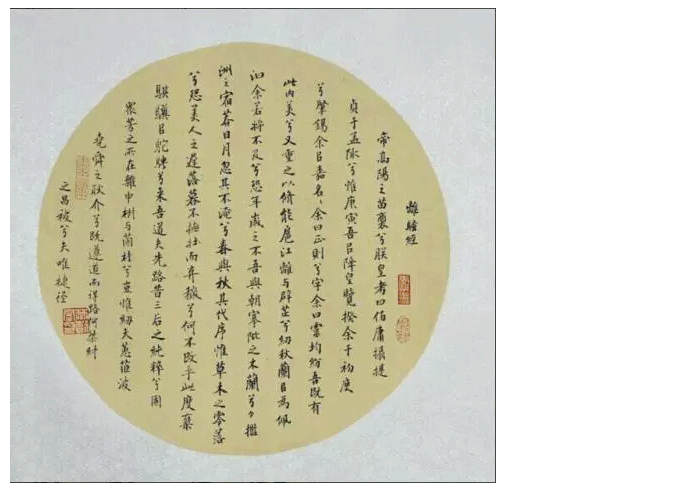 離騷經
帝高陽之苗裔兮朕皇考曰伯庸攝提
貞于孟陬兮惟庚寅吾㠯降皇覽揆余于初度
兮肇錫余㠯嘉名、余曰正則兮字余曰靈均紛吾既有
此內美兮又重之以脩能扈江離与辟芷兮紉秋蘭㠯為佩
汩余若將不及兮恐年歲之不吾與朝搴阰之木蘭兮夕攬
洲之宿莽日月忽其不淹兮春與秋其代序惟草木之零落
兮恐美人之遲落暮不撫壯而弃穢兮何不改乎此度棄
騏驥㠯馳騁兮来吾道夫先路昔三后之純粹兮固
衆芳之所在雜申椒与菌桂兮豈惟紉夫蕙茝彼
堯舜之耿介兮既遵道而得路何桀紂
之昌被兮夫唯捷徑